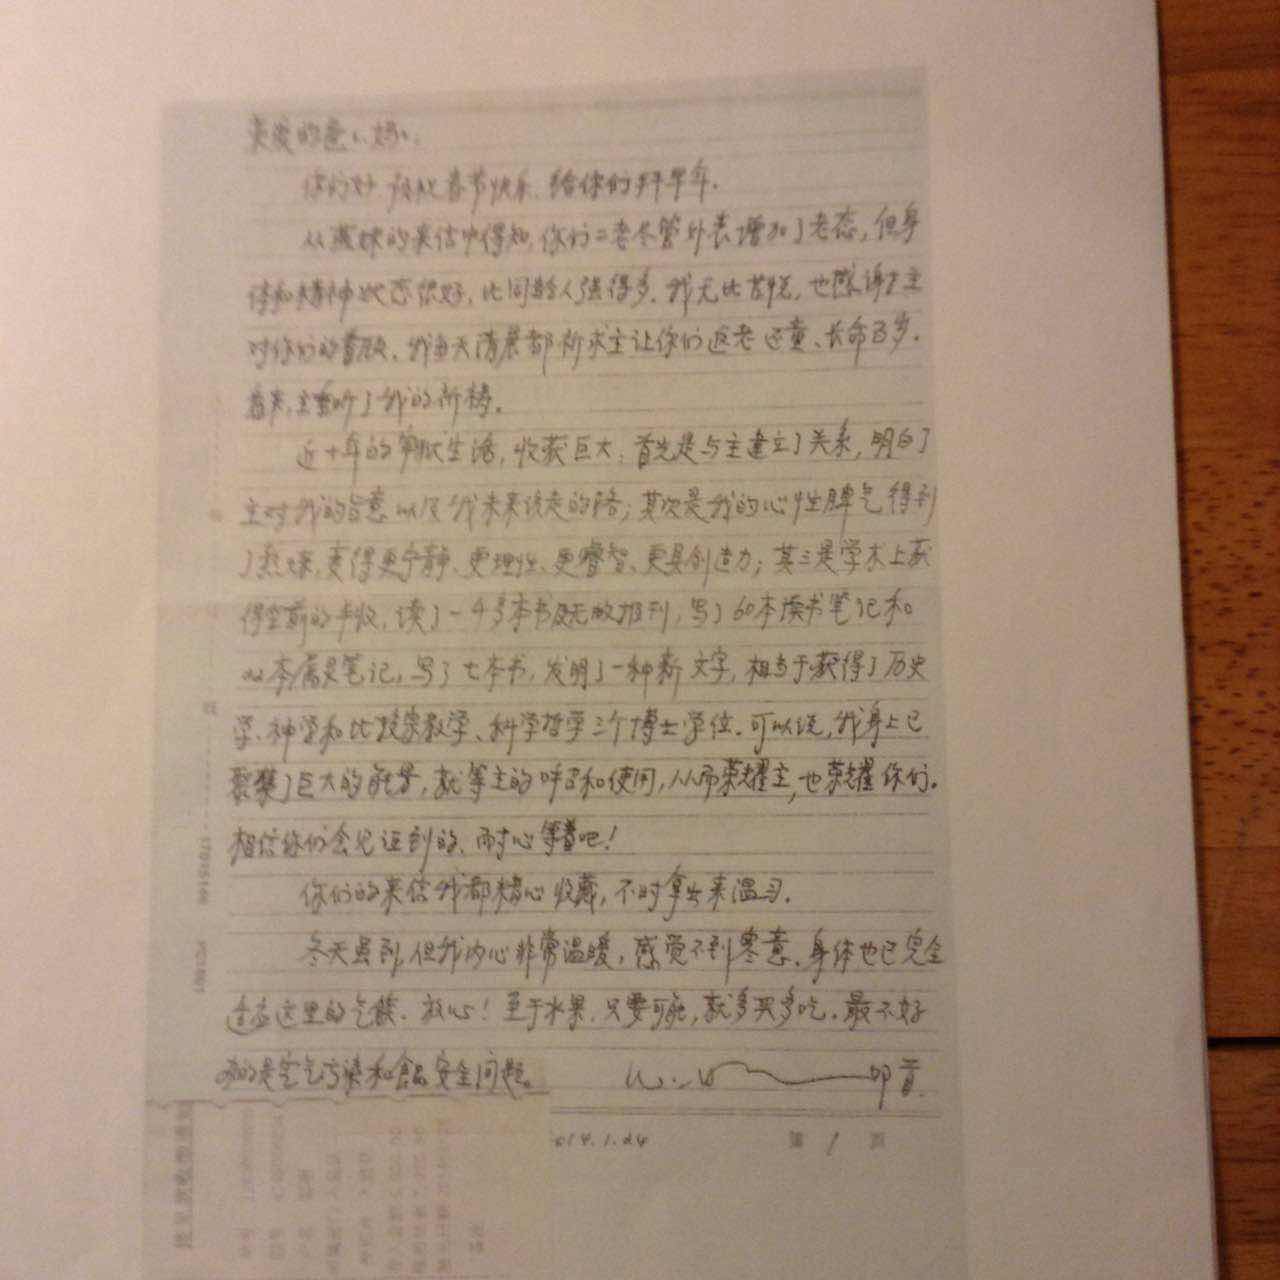 亲爱的爸、妈、
你们好 祝春节快乐、给你们拜早年.
从 妹的来信中得知,你们二老尽管外表增加了老态,但身
体和精神状态很好,比同龄人强得多.我无比 ,也感谢主
对你们的眷顾.我每天清晨都祈求主让你们返老还童、长命百岁.
看来,主垂听了我的祈祷.
近十年的 狱生活,收获巨大:首先是与主建立了关系,明白了
主对我的旨意以及我未来该走的路;其次是我的心性脾气得到
了熬炼,变得更宁静、更理性、更睿智、更具创造力;其三是学术上获
得空前的丰收,读了一千多本书及无数报刊,写了60本读书笔记和
本 笔记,写了七本书,发明了一种新文字,相当于获得了历史
学、神学和比较宗教学、科学哲学三个博士学位.可以说,我身上已
聚集了巨大的能量,就等主的呼召和使用,从而荣耀主,也荣耀你们.
相信你们会见证到的、耐心等着吧!
你们的来信我都精心收藏,不时拿出来温习.
冬天虽到,但我内心非常温暖,感觉不到寒意.身体也已完全
适应这里的气候.放心!至于水果,只要可能,就多买多吃.最不好
的是空气污染和食品安全问题。 叩首.
014.1.24 第 1 页